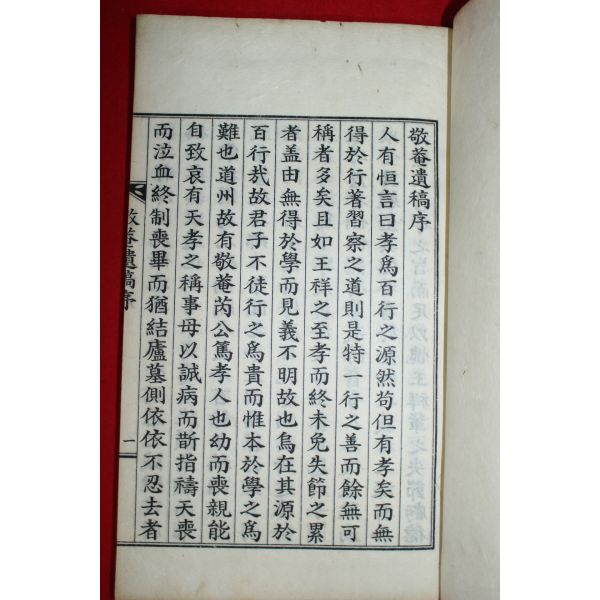 敬菴遺稿序
人有恒言曰孝爲百行之源然苟但有孝矣而無
得於行著習察之道則是特一行之善而餘無可
稱者多矣且如王祥之至孝而終未免失節之累
者盖由無得於學而見義不明故也烏在其源於
百行哉故君子不徒行之爲貴而惟本於學之爲
難也道州故有敬菴芮公篤孝人也幼而喪親能
自致哀有天孝之稱事母以誠病而斮指禱天喪
而泣血終制喪畢而猶結廬墓側依依不忍去者
敬菴遺稿序
一